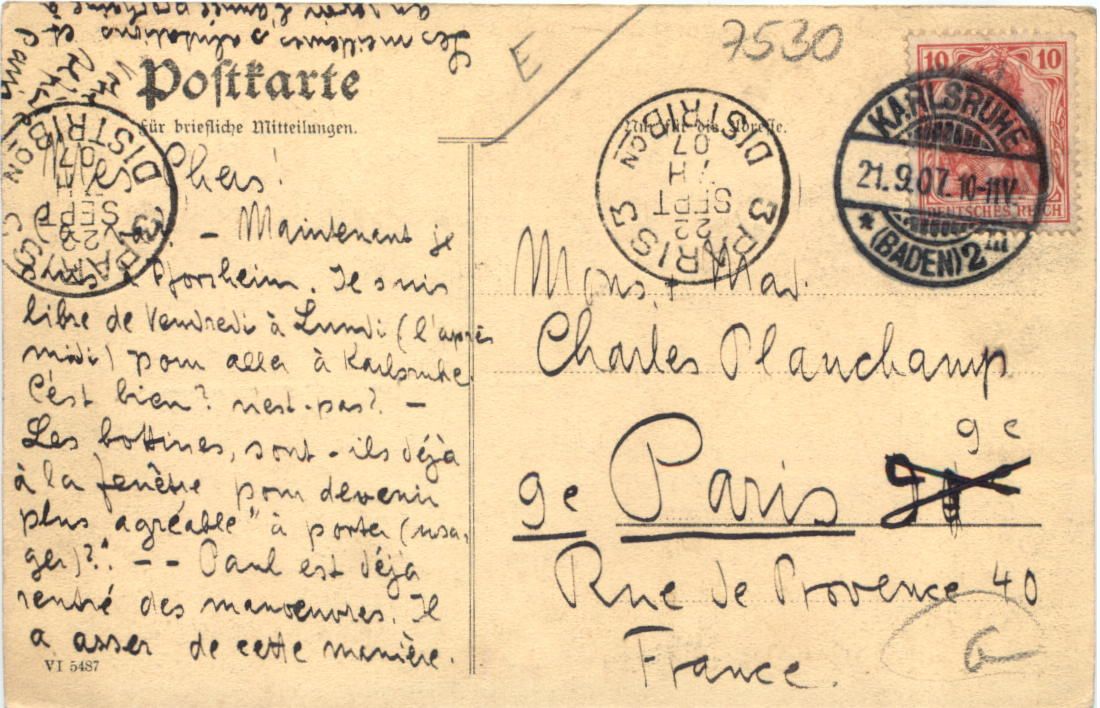 Les meilleures salutations et
au revoir l'année prochaine à
Paris
7530
E
Postkarte
für briefliche Mitteilungen.
Nur für die Adresse.
10 10
DEUTSCHES REICH
KARLSRUHE
21.9.07. 10-11V.
* (BADEN) 2 m
PARIS 3
23
SEPT
07
DISTRIBON
3
PARIS 3
23
SEPT
07
DISTRIBON
Mes Chers!
– Maintenant je
suis à Pforzheim. Je suis
libre de Vendredi à Lundi (l'après
midi) pour aller à Karlsruhe.
C'est bien? n'est-pas? –
Les bottines, sont-ils déjà
à la fenêtre pour devenir
plus agréable "à porter (usa-
ger)?" – – Paul est déjà
rentré des manoeuvres. Il
a asser de cette manière.
VI 5487
Mons. + Mad.
Charles Planchamp
9e
9e Paris
Rue de Provence 40
France.
G